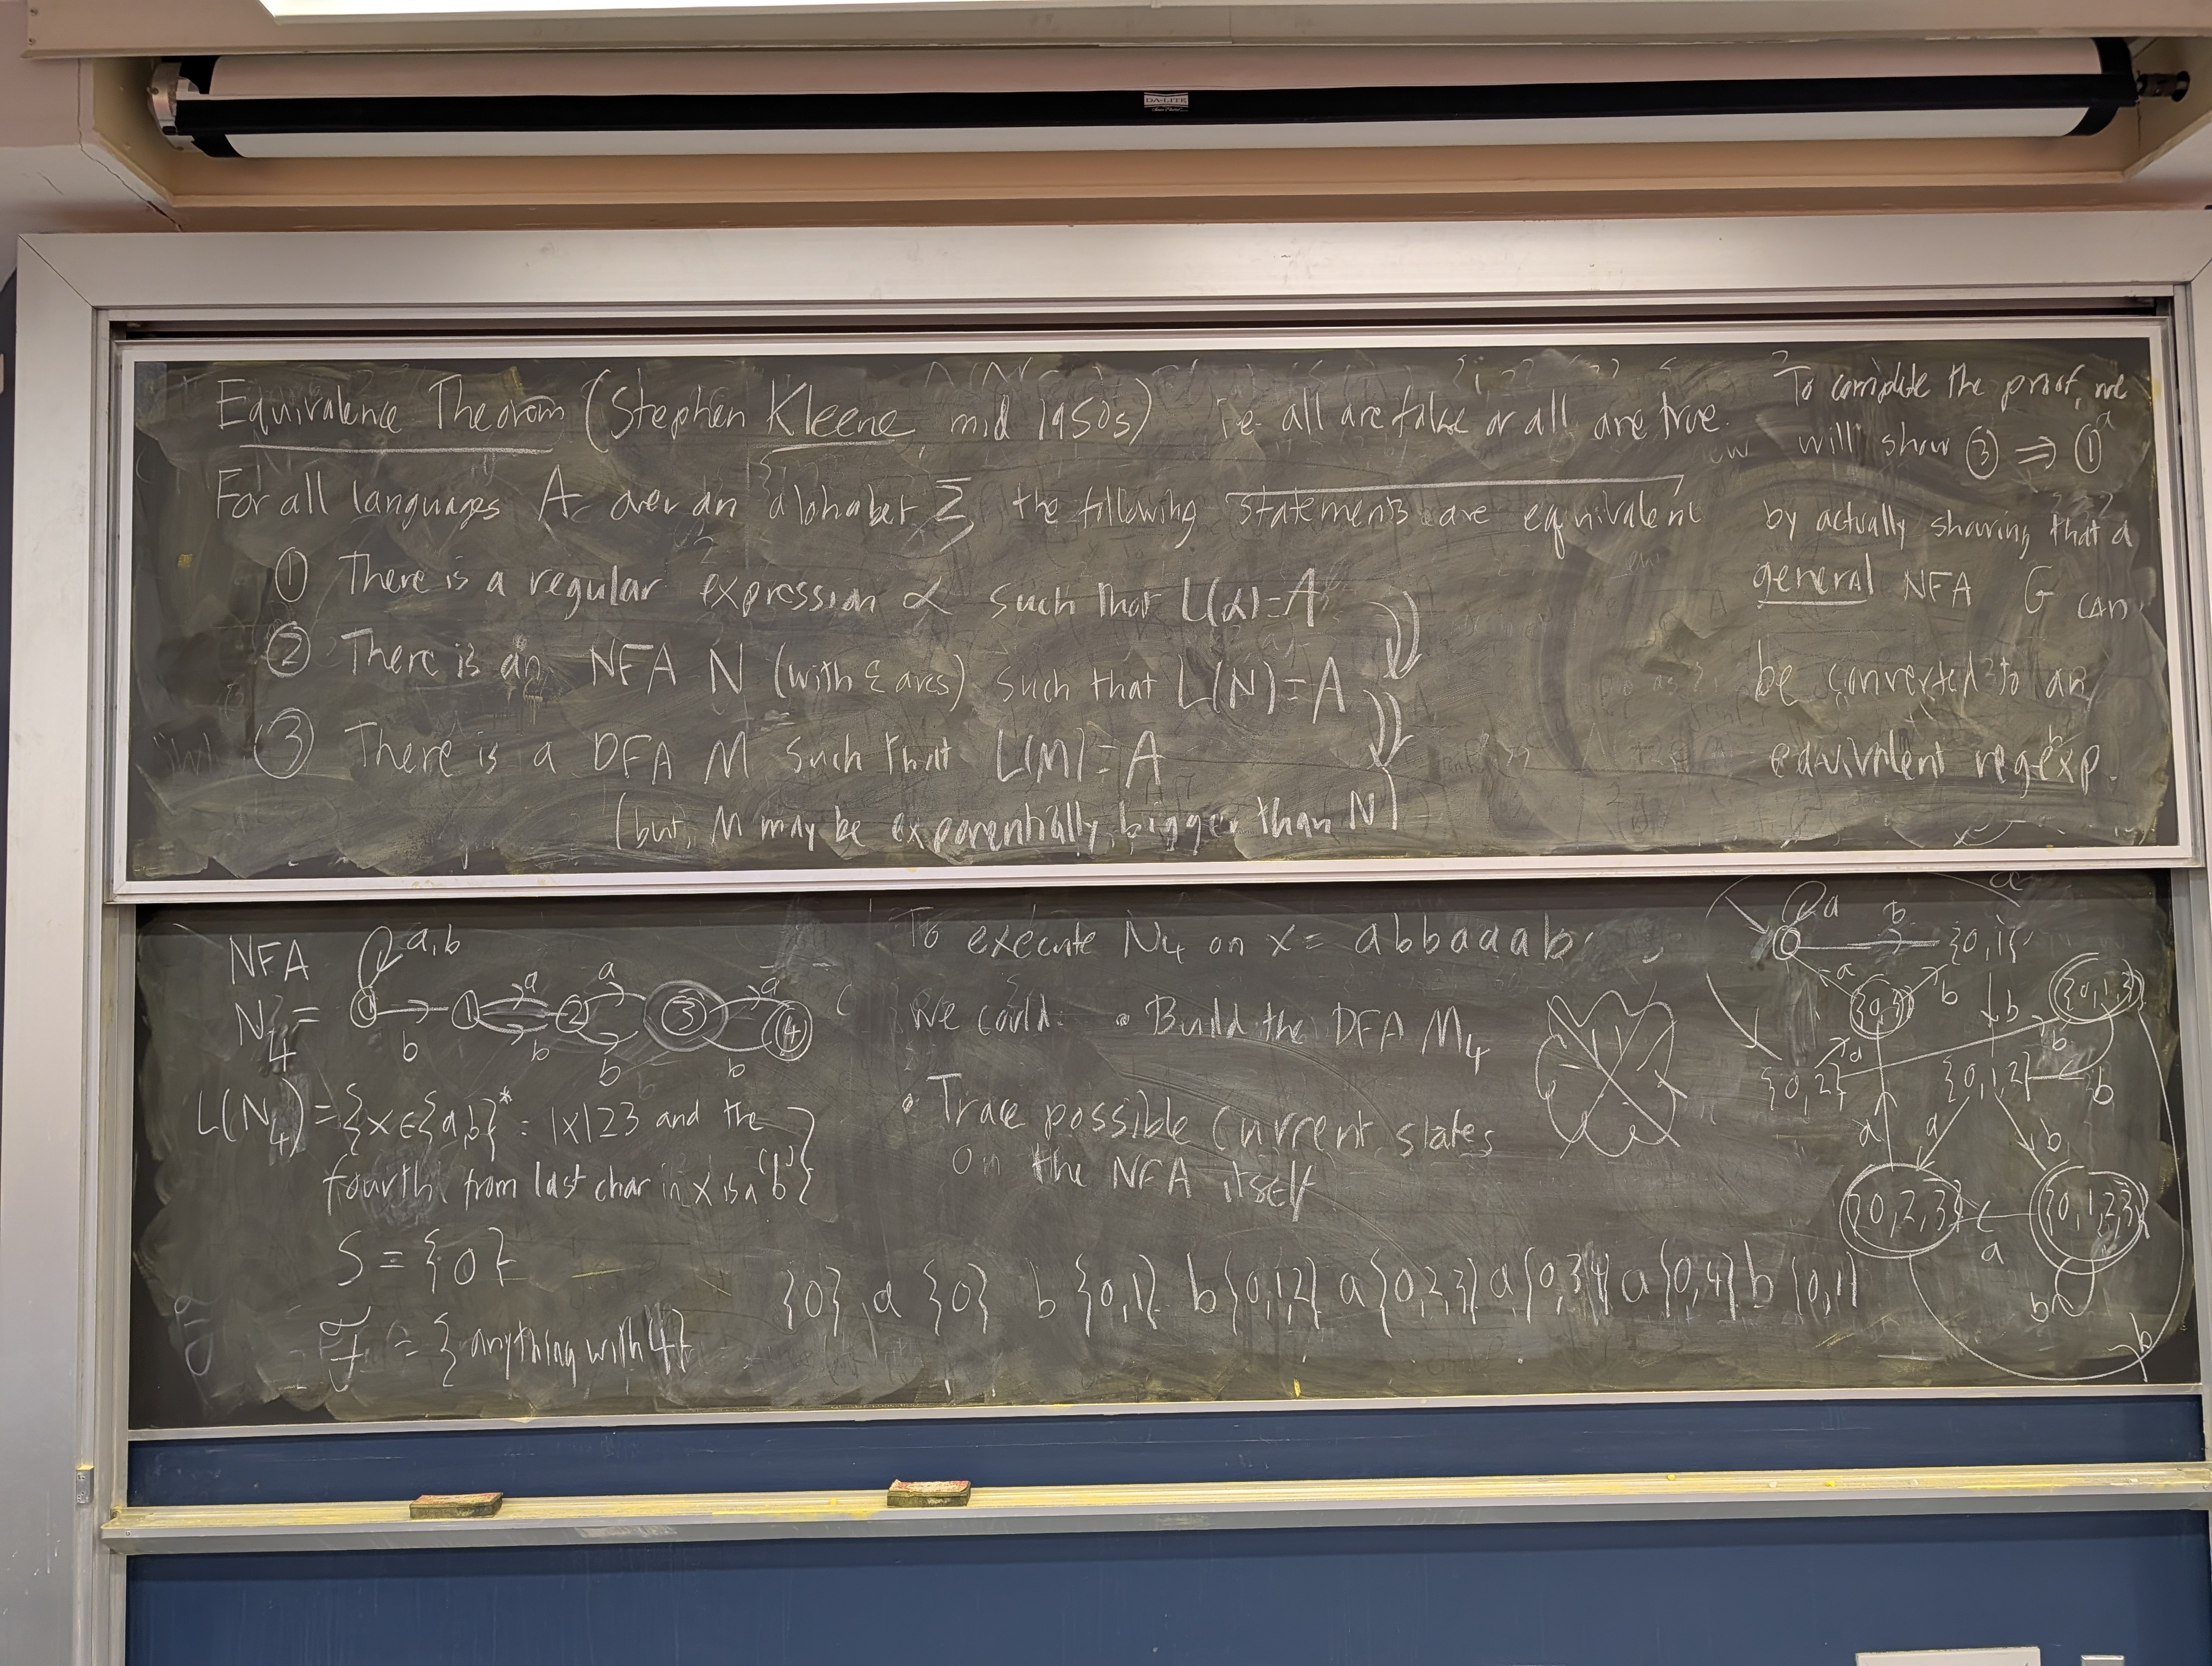 DA-LITE
Equivalence Theorem (Stephen Kleene mid 1950s) i.e. all are false or all are true.
For all languages A over an alphabet Σ the following statements are equivalent
① There is a regular expression α such that L(α)=A
② There is an NFA N (with ε arcs) such that L(N)=A
③ There is a DFA M such that L(M)=A
(but, M may be exponentially bigger than N)
To complete the proof, we
will show ③ ⇒ ①
by actually showing that a
general NFA G can
be converted to an
equivalent regexp.
NFA
N4 =
a,b
0 1 2 3 4
a a a
b b b b
L(N4) = {x∈{a,b}* : |x|≥3 and the
fourth from last char in x is a 'b'}
S = {0}
F = {anything with 4}
To execute N4 on x = abbaaab
We could: • Build the DFA M4
• Trace possible current states
on the NFA itself
{0} a {0} b {0,1} b {0,1,2} a {0,2,3} a {0,3,4} a {0,4} b {0,1}
a
0 b {0,1}
a {0,3} b {0,1,3}
b
a b
{0,2} {0,1,2} b
a a b
{0,2,3} a {0,1,2,3}
b
b